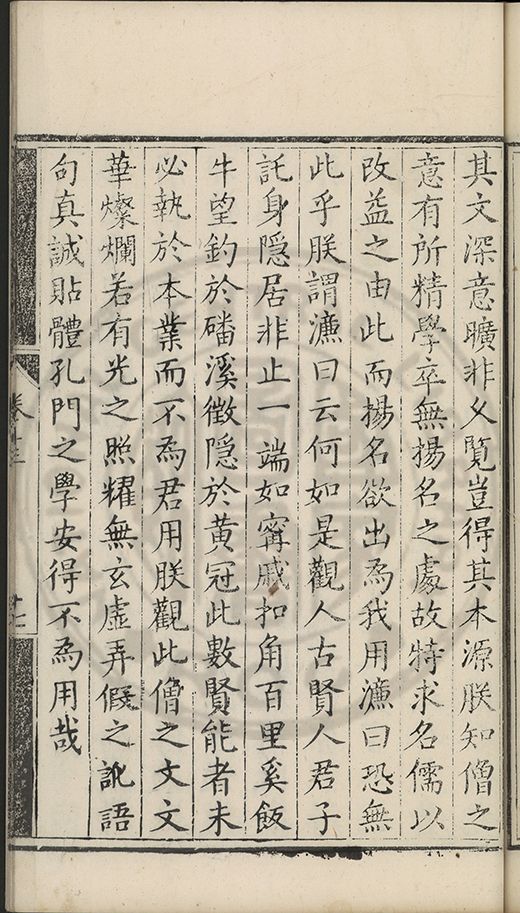 其文深意曠非久覧豈得其本源朕知僧之
意有所精學卒無揚名之處故特求名儒以
改益之由此而揚名欲出為我用濂曰恐無
此乎朕謂濂曰云何如是觀人古賢人君子
託身隠居非止一端如寗戚扣角百里奚飯
牛望釣於磻溪徴隠於黄冠此數賢能者未
必執於本業而不為君用朕觀此僧之文文
華燦爛若有光之照耀無玄虚弄假之訛語
句真誠貼體孔門之學安得不為用哉
卷十三
十七